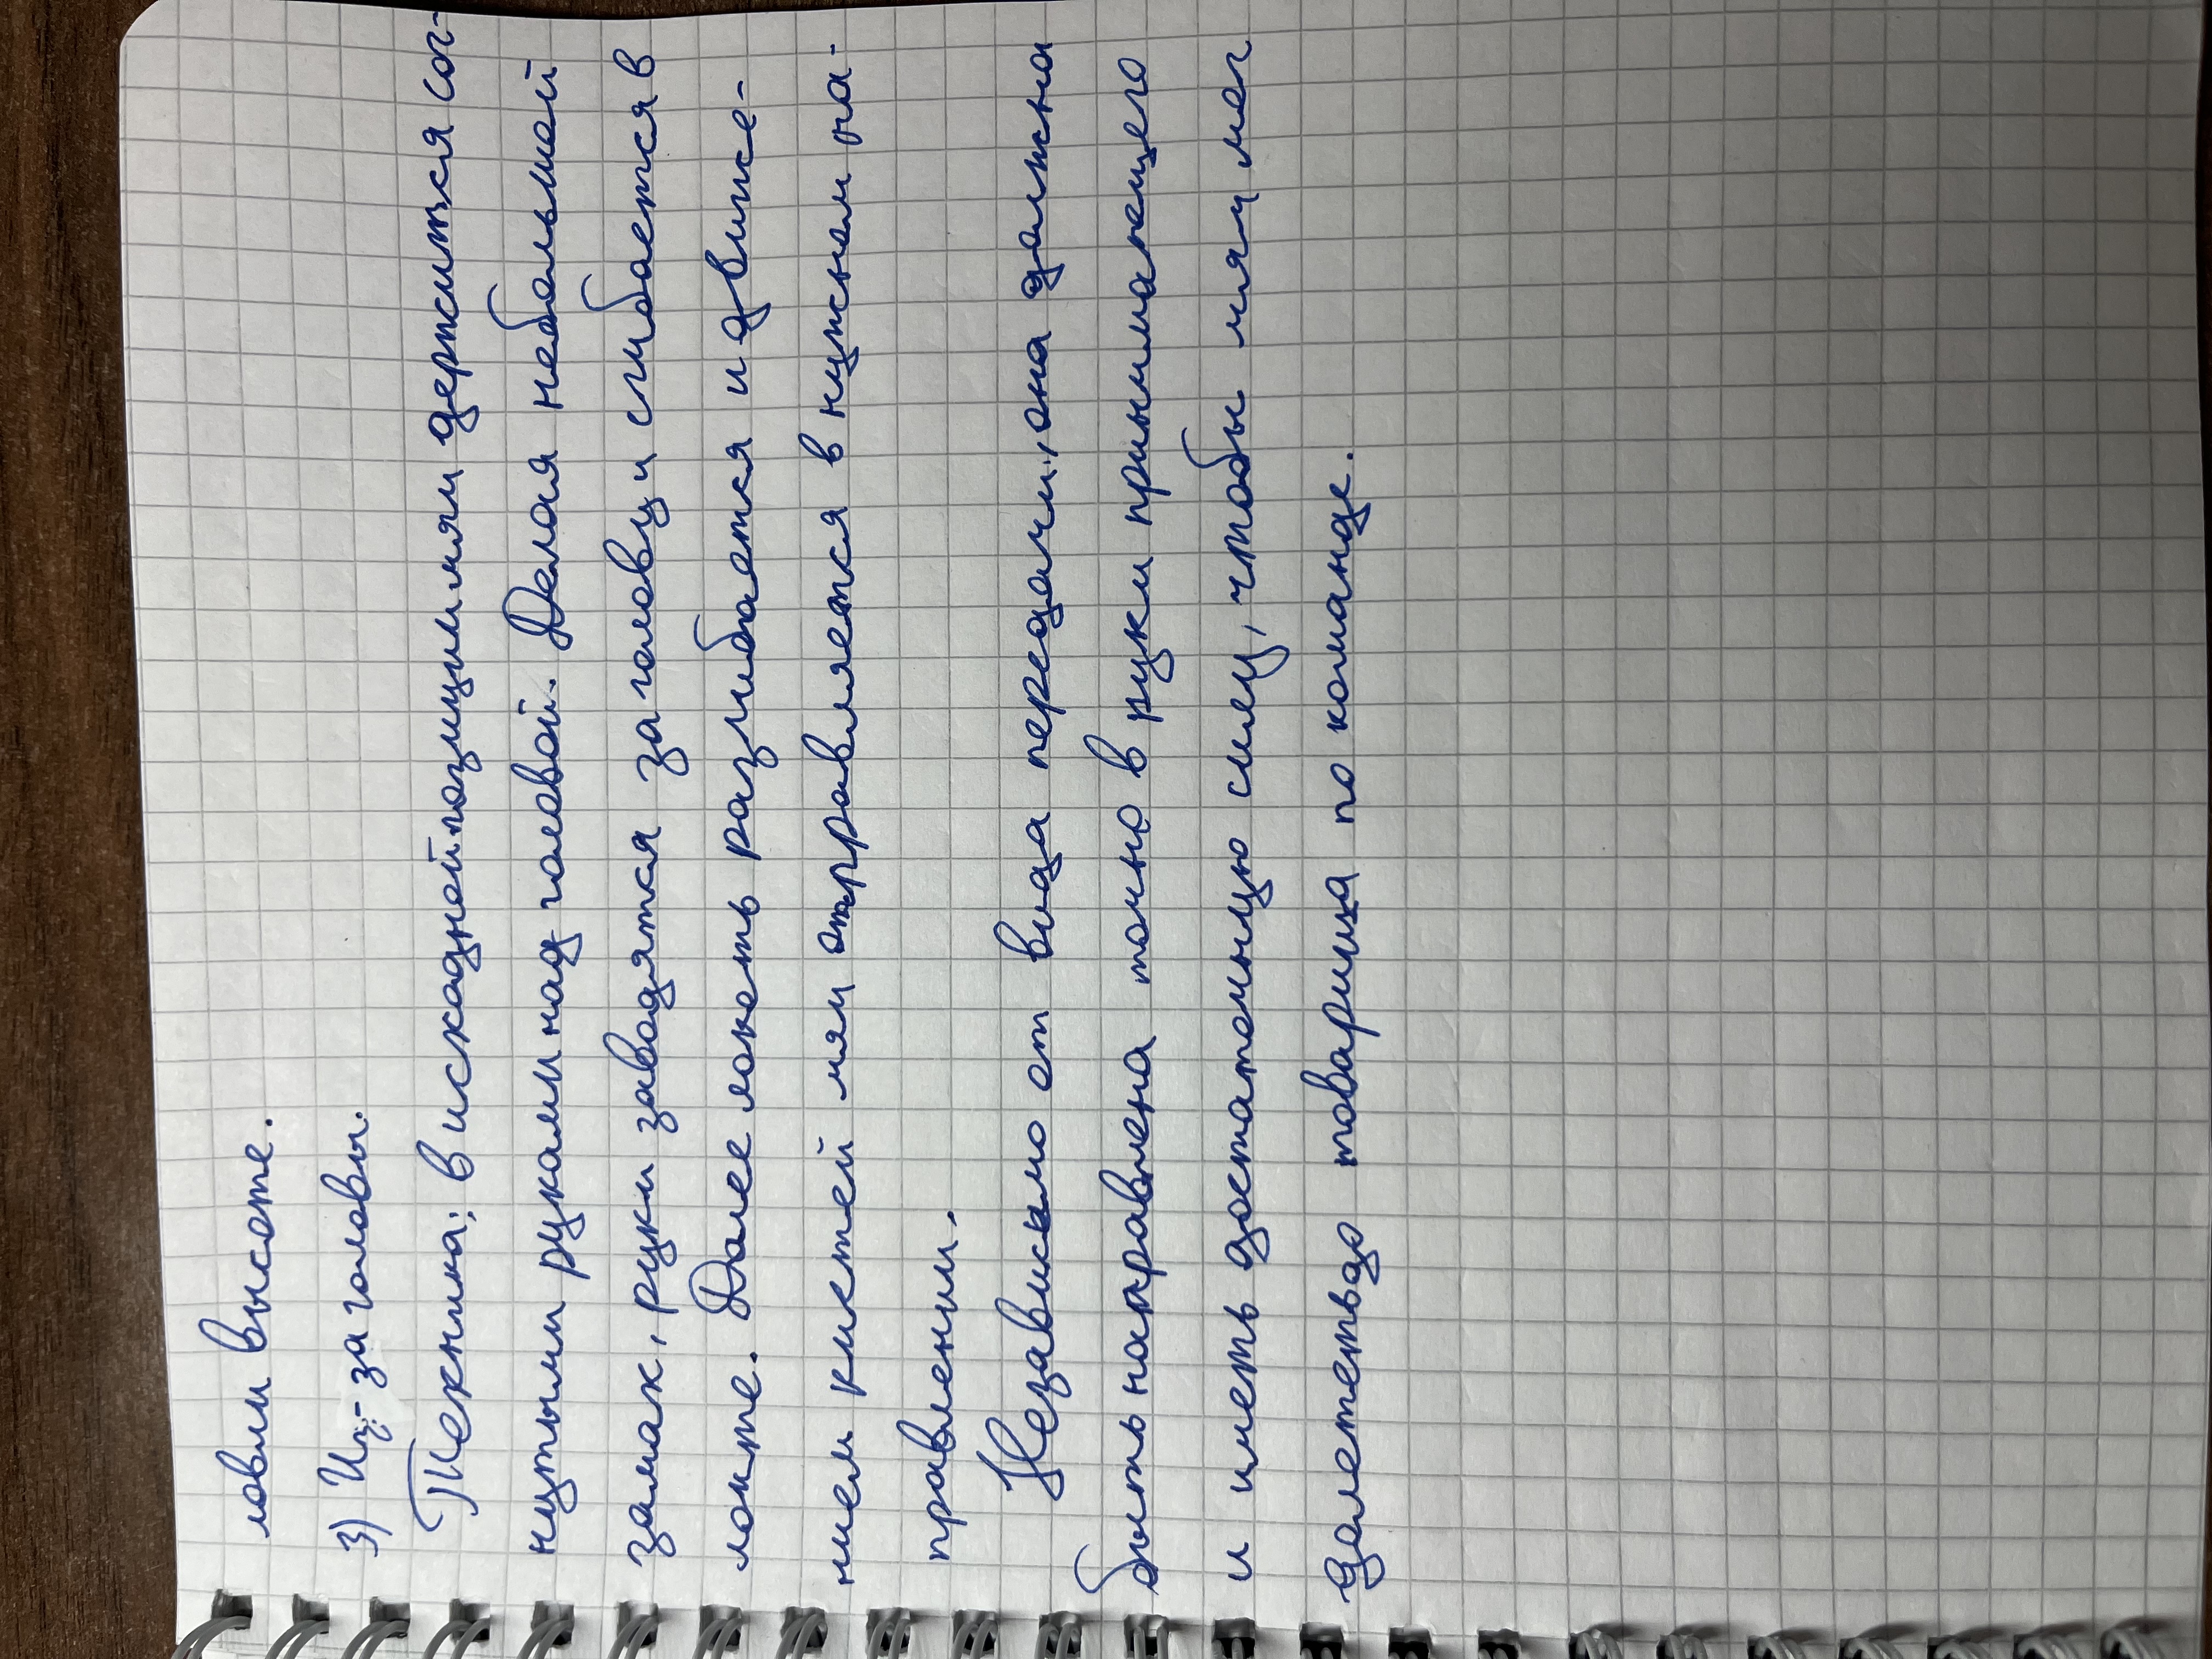 ловли высоте.
3) Из-за головы.
Техника: в исходной позиции мяч держится сог-
нутыми руками над головой. Делая небольшой
замах, руки заводятся за голову и сгибается в
локте. Далее локоть разгибается и движе-
нием кистей мяч отправляется в нужном на-
правлении.
Независимо от вида передачи, она должна
быть направлена точно в руки принимающего
и иметь достаточную силу, чтобы мяч мог
долететь до товарища по команде.